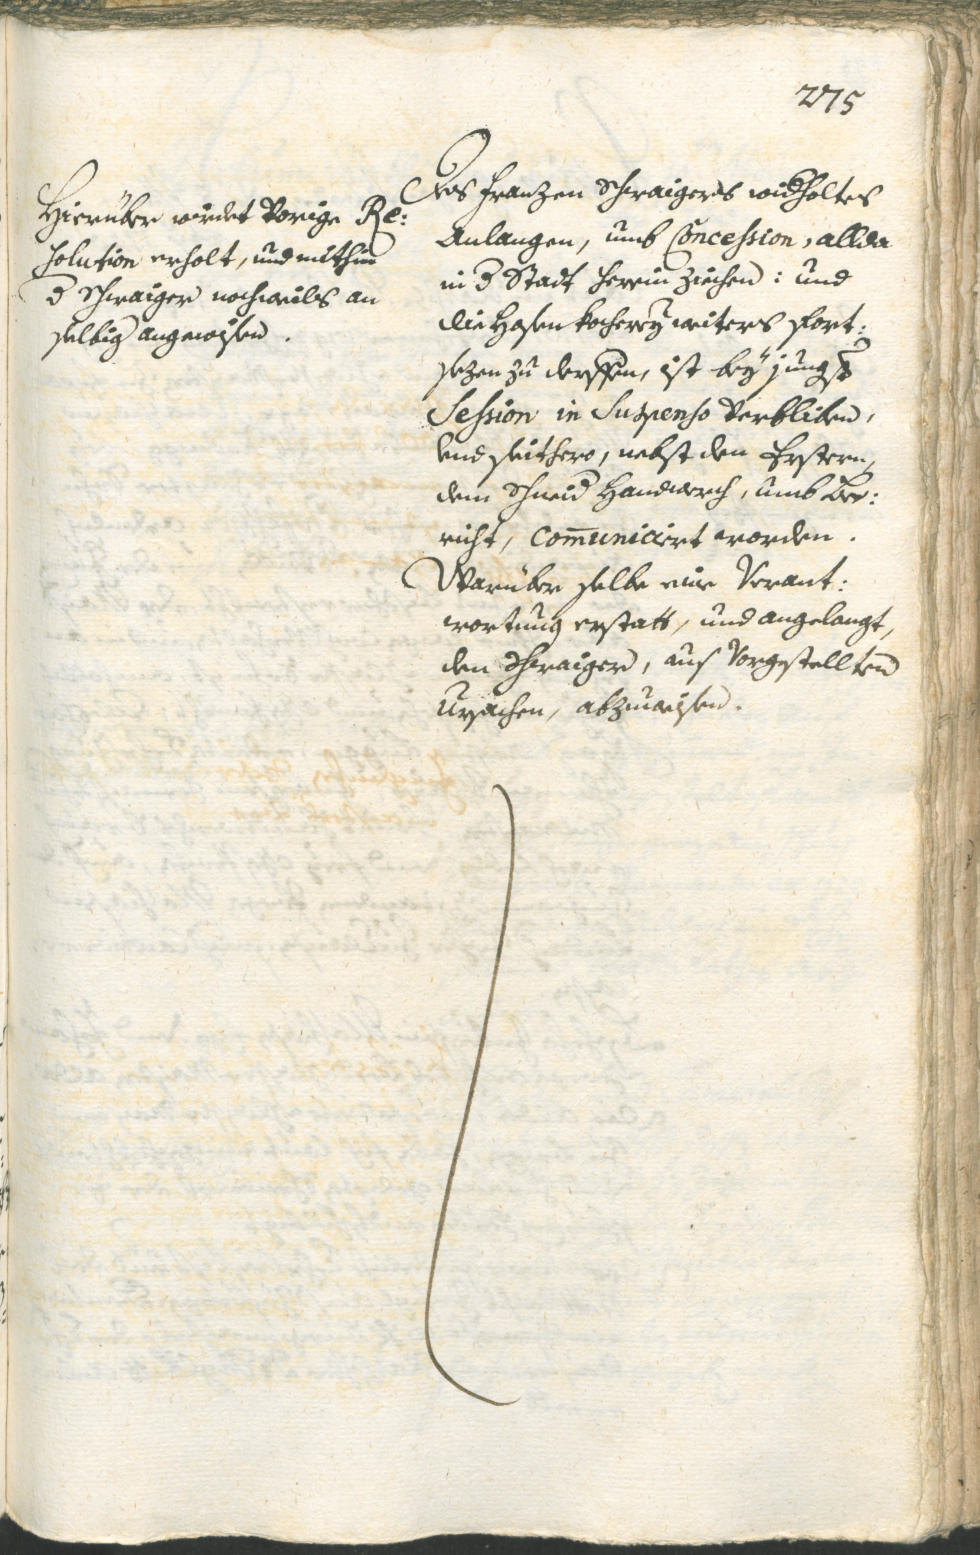 275
Hierüber wirdet Vorige Re:
solution erholt, und mithin
d Schwaiger nochmals an
selbig angewisen.
Des Franzen Schwaigers widholtes
Anlangen, umb Concession, allda
in d Statt herein ziehen: und
die Hosen kocherey weiters fort:
sezen zu derffen, ist bey jungst
Session in Suspenso verbliben,
und seithero, nebst den Erstern,
dem Schneid Handwerch, umb Be:
richt, Com̄uniciert worden.
Warüber selbe eine Verant:
wortung erstatt, und angelangt,
den Schwaiger, aus Vorgestellten
Ursachen, abzuweisen.